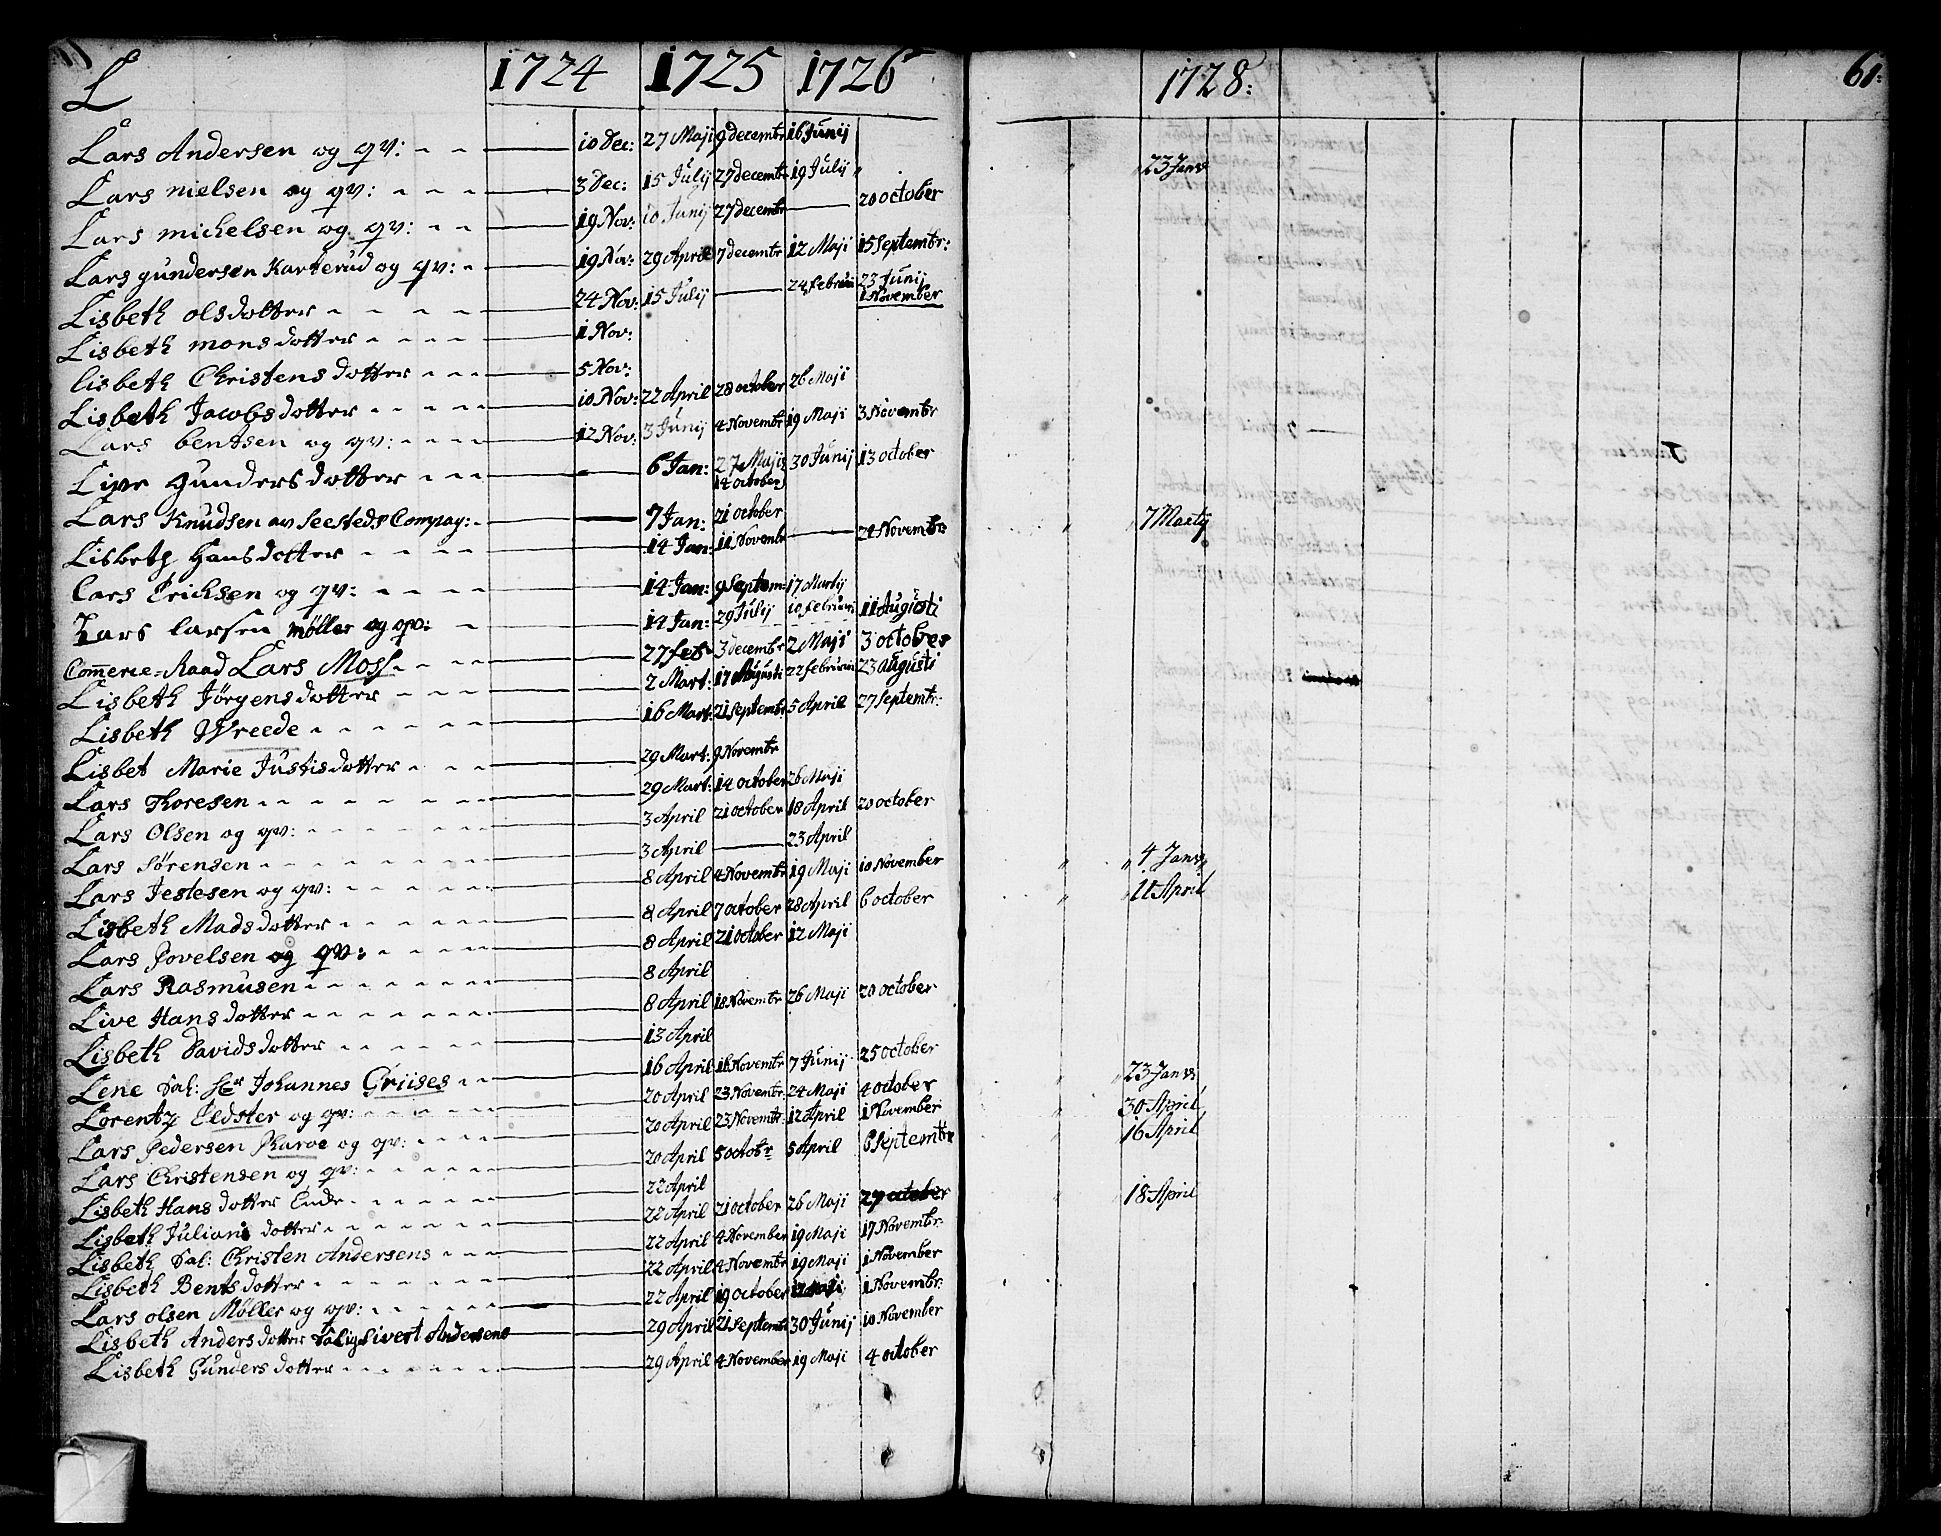 L 1724 1725 1726 1728: 61:
Lars Andersen og qv: 10 Dec: 27 Maji 9 decembr 16 Junij
Lars nielsen og qv: 3 Dec: 15 Julij 27 decembr 19 Julij " " 23 Janv
Lars michelsen og qv: 19 Nov: 10 Junij 27 decembr — 20 october
Lars gundersen Karterud og qv: 19 Nov: 29 April 7 decembr 12 Maji 15 Septembr:
Lisbeth olsdotter 24 Nov: 15 Julij — 24 februari 23 Junij 1 November
Lisbeth monsdotter 1 Nov:
lisbeth Christensdotter 5 Nov:
Lisbeth Jacobsdotter 10 Nov: 22 April 28 october 26 Maji
Lars bentsen og qv: 12 Nov: 3 Junij 4 Novembr 19 Maji 3 Novembr
Live gundersdotter 6 Jan: 27 Maji 14 october 30 Junij 13 october
Lars Knudsen av Seesteds Compag: 7 Jan: 21 october " 7 Martij
Lisbeth Hansdotter 14 Jan: 11 Novembr — 24 Novembr
Lars Erichsen og qv: 14 Jan: 9 Septem: 17 Martij
Lars larsen møller og qv: 14 Jan: 29 Julij 10 februari 11 Augusti
Commerce-Raad Lars Moss 27 feb 3 decembr 2 Maji 3 october
Lisbeth Jørgensdotter 2 Mart: 17 Augusti 22 februari 23 augusti
Lisbeth Wreede 16 Mart: 21 Septembr 5 April 27 Septembr:
Lisbet Marie Justisdotter 29 Mart: 9 Novembr
Lars Thoresen 29 Mart: 14 october 26 Maji
Lars Olsen og qv: 3 April 21 october 18 April 20 october
Lars Sørensen 3 April — 23 April
Lars Jestesen og qv: 8 April 4 Novembr 19 Maji 10 November " " 4 Janv
Lisbeth Madsdotter 8 April 7 october 28 April 6 october " " 11 April
Lars Povelsen og qv: 8 April 21 october 12 Maji
Lars Rasmusen 8 April
Live Hansdotter 8 April 18 Novembr 26 Maji 20 october
Lisbeth Davidsdotter 13 April
Lene Sal: Hr Johannes Griises 16 April 16 Novembr 7 Junij 25 october
Lorentz Eldster og qv: 20 April 23 Novembr 24 Maji 4 october " 23 Janv
Lars Pedersen Skarve og qv: 20 April 23 Novembr: 12 April 1 November 30 April
Lars Christensen og qv: 20 April 5 octobr 5 April 6 Septembr 16 April
Lisbeth Hansdotter Ende 22 April
Lisbeth Julianidotter 22 April 21 october 26 Maji 27 october 18 April
Lisbeth Sal: Christen Andersens 22 April 4 November 19 Maji 17 Novembr
Lisbeth Bentsdotter 22 April 4 Novembr 19 Maji 1 November
Lars olsen Møller og qv: 22 April 19 october 12 Maji 1 Novembr:
Lisbeth Andersdotter Salig Sivert Andersens 29 April 21 Septembr 30 Junij 10 November
Lisbeth Gundersdotter 29 April 4 November 19 Maji 4 october